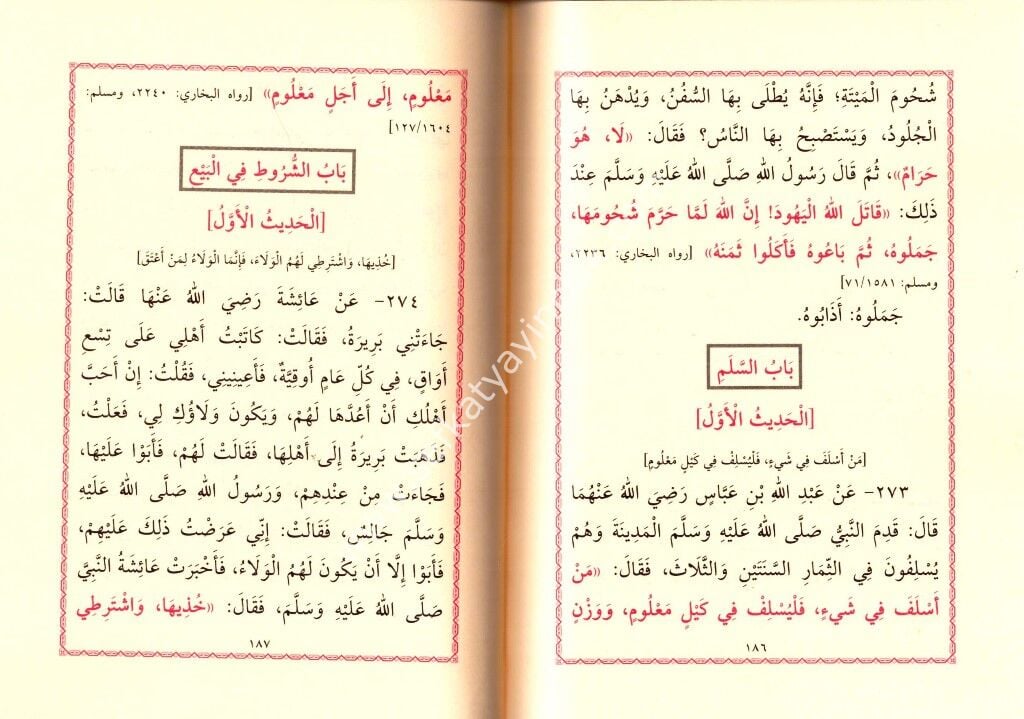 شُحُومَ الْمَيْتَةِ؛ فَإِنَّهُ يُطْلَى بِهَا السُّفُنُ، وَيُدْهَنُ بِهَا
الْجُلُودُ، وَيَسْتَصْبِحُ بِهَا النَّاسُ؟ فَقَالَ: «لَا، هُوَ
حَرَامٌ»، ثُمَّ قَالَ رَسُولُ اللهِ صَلَّى اللهُ عَلَيْهِ وَسَلَّمَ عِنْدَ
ذَلِكَ: «قَاتَلَ اللهُ الْيَهُودَ! إِنَّ اللهَ لَمَّا حَرَّمَ شُحُومَهَا،
جَمَلُوهُ، ثُمَّ بَاعُوهُ فَأَكَلُوا ثَمَنَهُ» [رواه البخاري: ٢٢٣٦،
ومسلم: ٧١/١٥٨١]
جَمَلُوهُ: أَذَابُوهُ.
بَابُ السَّلَمِ
[الْحَدِيثُ الْأَوَّلُ]
[مَنْ أَسْلَفَ فِي شَيْءٍ، فَلْيُسْلِفْ فِي كَيْلٍ مَعْلُومٍ]
٢٧٣- عَنْ عَبْدِ اللهِ بْنِ عَبَّاسٍ رَضِيَ اللهُ عَنْهُمَا
قَالَ: قَدِمَ النَّبِيُّ صَلَّى اللهُ عَلَيْهِ وَسَلَّمَ الْمَدِينَةَ وَهُمْ
يُسْلِفُونَ فِي الثِّمَارِ السَّنَتَيْنِ وَالثَّلَاثَ، فَقَالَ: «مَنْ
أَسْلَفَ فِي شَيْءٍ، فَلْيُسْلِفْ فِي كَيْلٍ مَعْلُومٍ، وَوَزْنٍ
١٨٦
مَعْلُومٍ، إِلَى أَجَلٍ مَعْلُومٍ» [رواه البخاري: ٢٢٤٠، ومسلم:
١٢٧/١٦٠٤]
بَابُ الشُّرُوطِ فِي الْبَيْعِ
[الْحَدِيثُ الْأَوَّلُ]
[خُذِيهَا، وَاشْتَرِطِي لَهُمُ الْوَلَاءَ، فَإِنَّمَا الْوَلَاءُ لِمَنْ أَعْتَقَ]
٢٧٤- عَنْ عَائِشَةَ رَضِيَ اللهُ عَنْهَا قَالَتْ:
جَاءَتْنِي بَرِيرَةُ، فَقَالَتْ: كَاتَبْتُ أَهْلِي عَلَى تِسْعِ
أَوَاقٍ، فِي كُلِّ عَامٍ أُوقِيَّةٌ، فَأَعِينِينِي، فَقُلْتُ: إِنْ أَحَبَّ
أَهْلُكِ أَنْ أَعُدَّهَا لَهُمْ، وَيَكُونَ وَلَاؤُكِ لِي، فَعَلْتُ،
فَذَهَبَتْ بَرِيرَةُ إِلَى أَهْلِهَا، فَقَالَتْ لَهُمْ، فَأَبَوْا عَلَيْهَا،
فَجَاءَتْ مِنْ عِنْدِهِمْ، وَرَسُولُ اللهِ صَلَّى اللهُ عَلَيْهِ
وَسَلَّمَ جَالِسٌ، فَقَالَتْ: إِنِّي عَرَضْتُ ذَلِكَ عَلَيْهِمْ،
فَأَبَوْا إِلَّا أَنْ يَكُونَ لَهُمُ الْوَلَاءُ، فَأَخْبَرَتْ عَائِشَةُ النَّبِيَّ
صَلَّى اللهُ عَلَيْهِ وَسَلَّمَ، فَقَالَ: «خُذِيهَا، وَاشْتَرِطِي
١٨٧